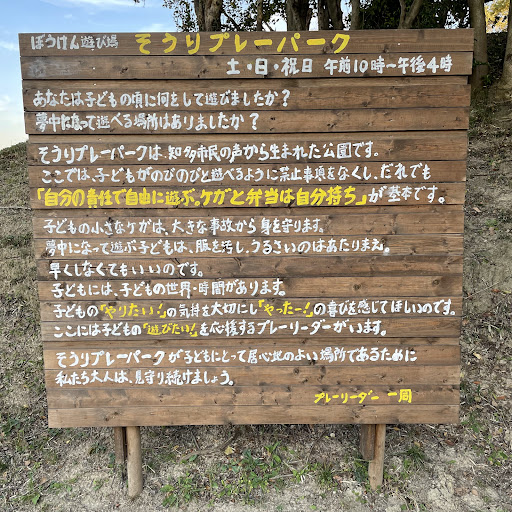 ぼうけん遊び場 そうりプレーパーク
土・日・祝日 午前10時～午後4時
あなたは子どもの頃に何をして遊びましたか？
夢中になって遊べる場所はありましたか？
そうりプレーパークは、知多市民の声から生まれた公園です。
ここでは、子どもがのびのびと遊べるように禁止事項をなくし、だれでも
「自分の責任で自由に遊ぶ。ケガと弁当は自分持ち」が基本です。
子どもの小さなケガは、大きな事故から身を守ります。
夢中になって遊ぶ子どもは、服を汚し、うるさいのはあたりまえ。
早くしなくてもいいのです。
子どもには、子どもの世界・時間があります。
子どもの「やりたい！」の気持を大切にし「やったー！」の喜びを感じてほしいのです。
ここには子どもの「遊びたい！」を応援するプレーリーダーがいます。
そうりプレーパークが子どもにとって居心地のよい場所であるために
私たち大人は、見守り続けましょう。
プレーリーダー 一同